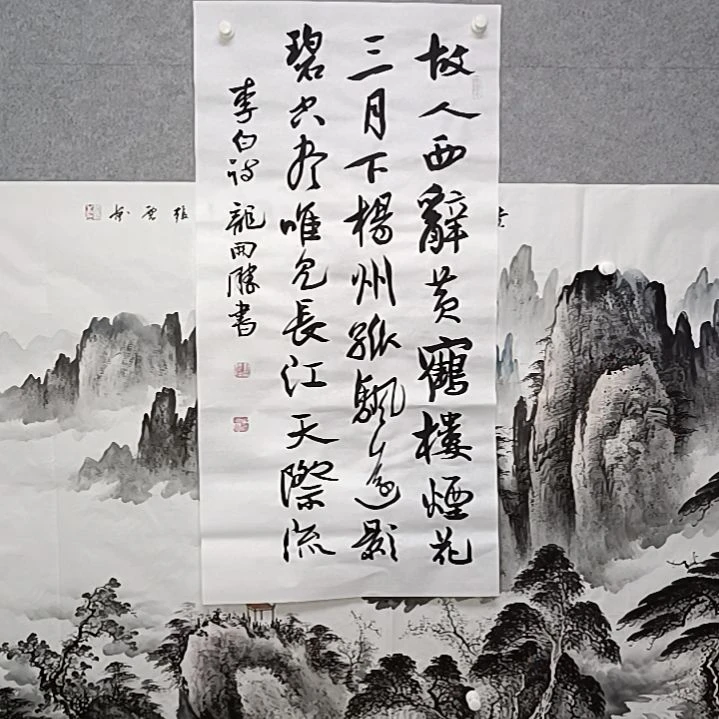 故人西辭黄鶴樓煙花
三月下楊州孤飄遠影
碧空盡唯見長江天際流
李白詩龍雨勝書